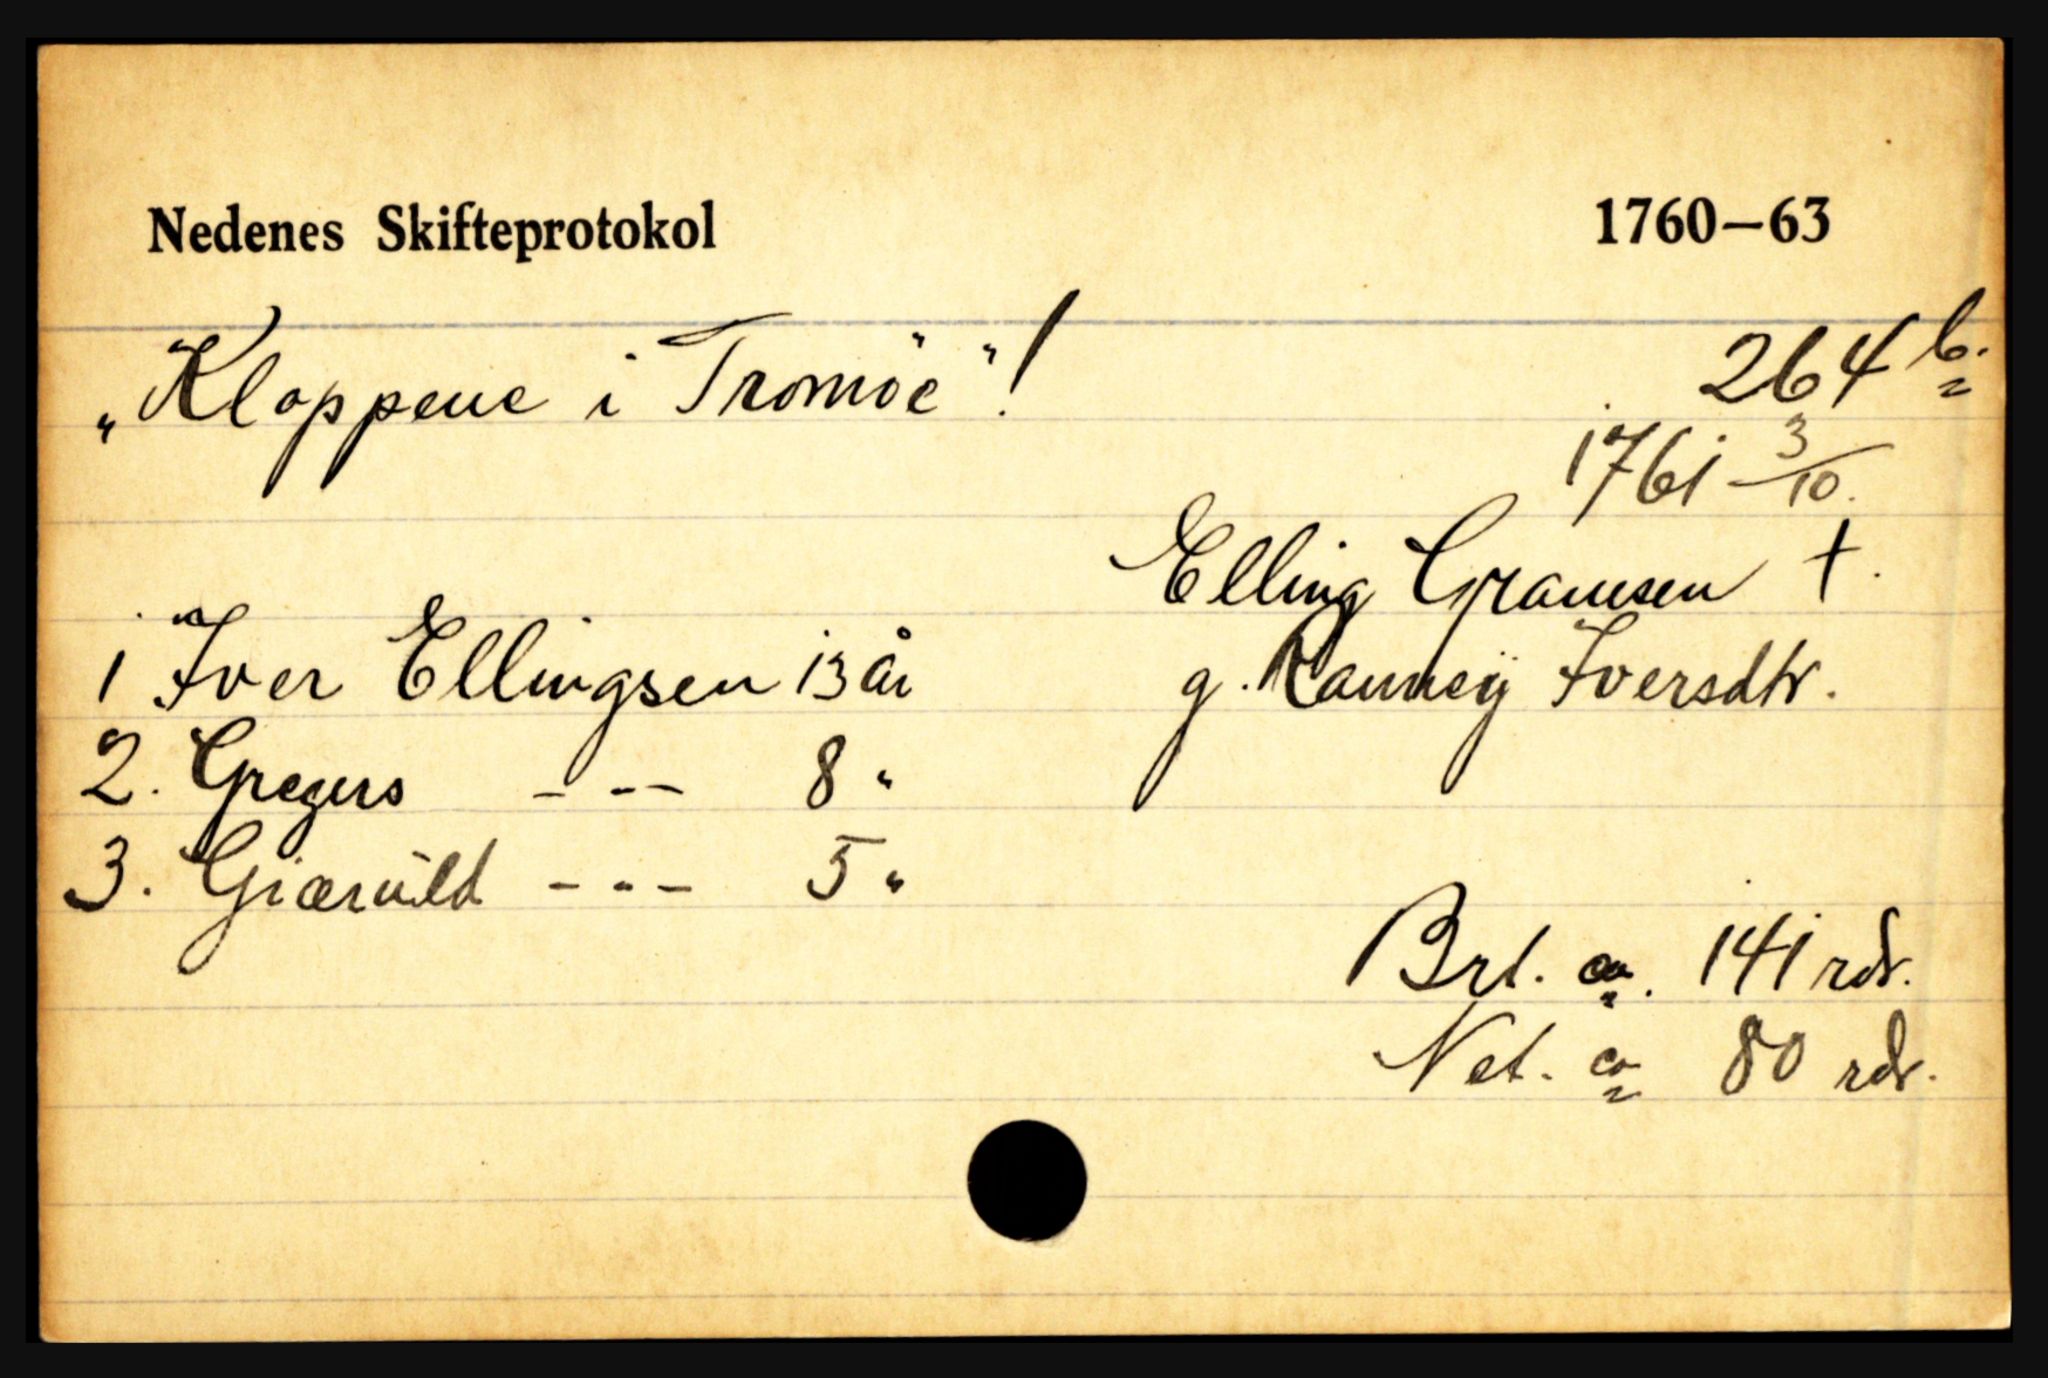 Nedenes Skifteprotokol 1760–63
„Kloppene i Tromöe"! 264 b.
1761 3/10.
Elling Gramsen †.
1 Iver Ellingsen 13 år g. Ranneÿ Iversdtr.
2. Gregers - -- 8 "
3. Giæruld - - - 5 "
Brt. ca. 141 rdr.
Net. ca 80 rdr.